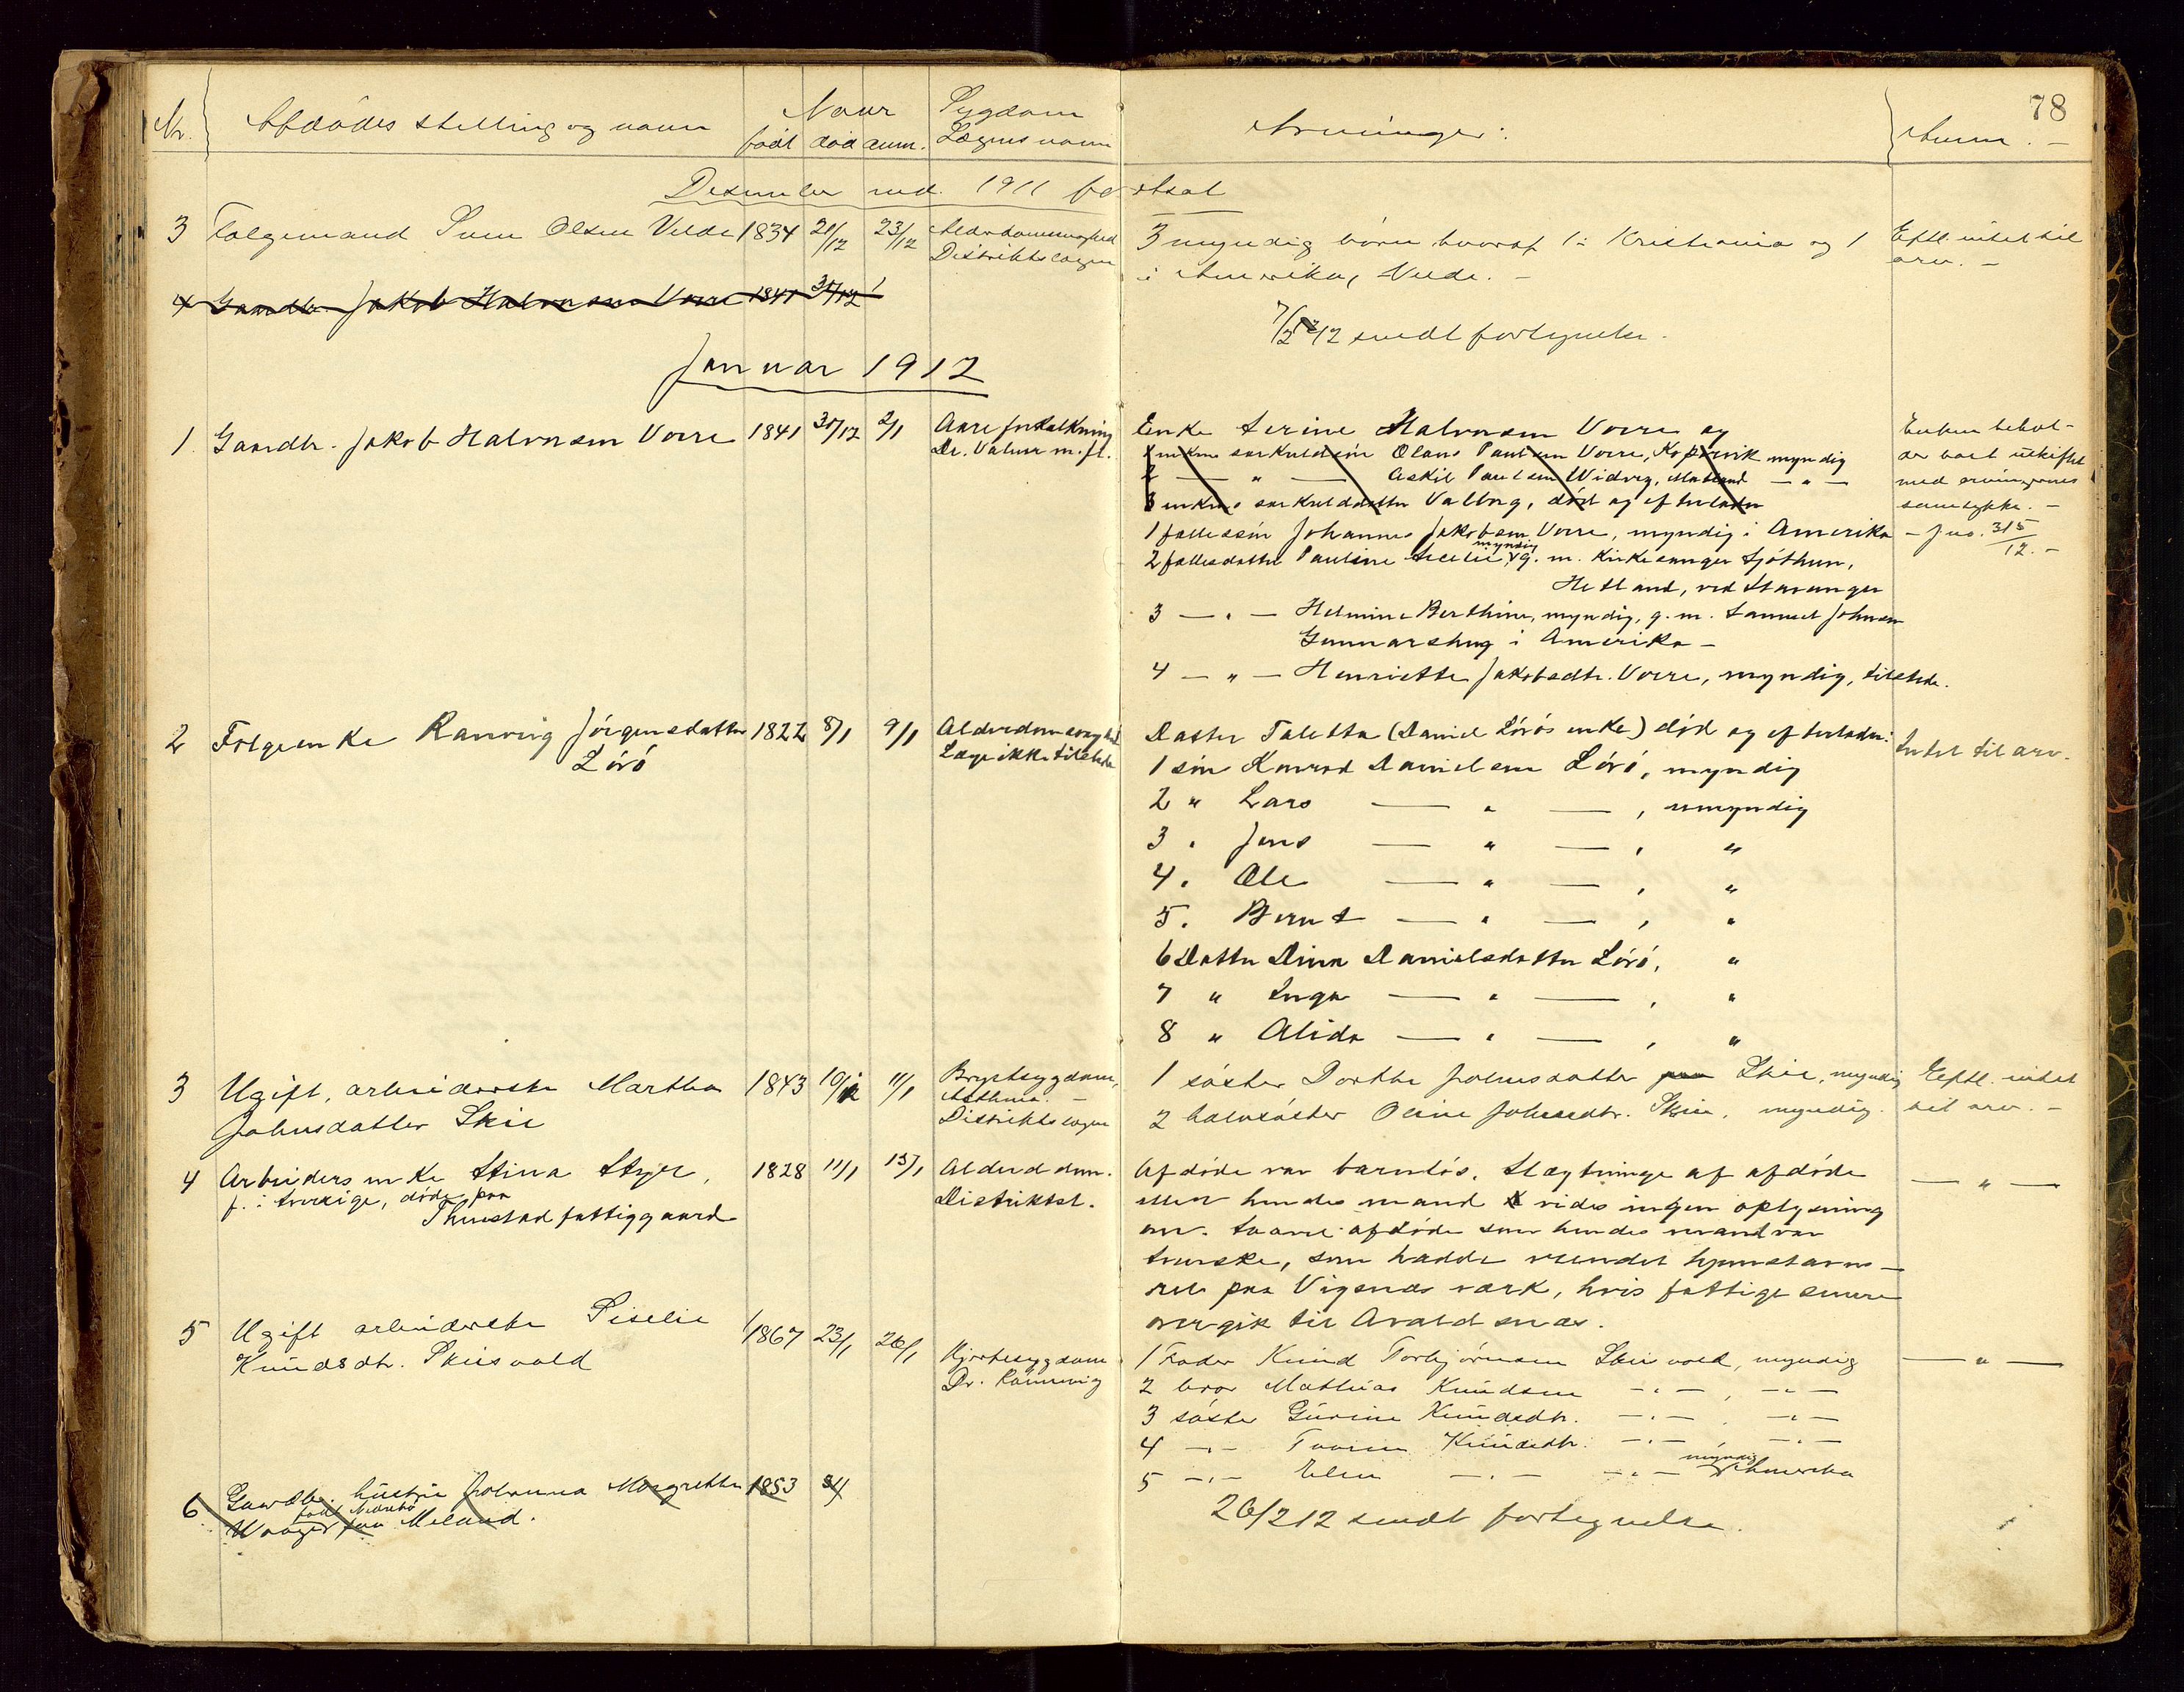 78
Nr. Afdødes stilling og navn Naar Sygdom Arvinger: Anm. -
født død anm. Lægens navn
Desember md. 1911 fortsat
3 Folgemand Sven Olsen Velde 1834 20/12 23/12 Alderdomssvaghed 3 myndig børn hvoraf 1 i Kristiania og 1 Eftl. intet til
Distriktslægen i Amerika, Velde. - arv. -
4 Gaardbr. Jakob Halvorsen Vorre 1841 31/12
7/2 12 sendt fortegnelse.
Januar 1912
1. Gaardbr. Jakob Halvorsen Vorre 1841 31/12 2/1 Aareforkalkning Enke Serine Halvorsen Vorre og Enken behol-
Dr. Valeur m. fl. 1 enkens særkuldsøn Olaus Paulsen Vorre, Kopervik myndig der boet uskiftet
2 — " — Askil Paulsen Widvey, Matland — " — med arvingernes
3 enkens særkulddatter Valborg, død og efterlader samtykke. -
1 fællessøn Johannes Jakobsen Vorre, myndig i Amerika - Jno. 315/12. -
2 fællesdatter Pauline Secelie, myndig g. m. Kirkesanger Sjøthun,
Hetland, ved Stavanger
3 — " — Helmine Berthine, myndig, g. m. Samuel Johnsen
Gunnarshug i Amerika -
4 — " — Henriette Jakobsdtr. Vorre, myndig, tilstede.
2 Folgeenke Ranveig Jörgensdatter 1822 8/1 9/1 Alderdomssvaghed Datter Taletta (Daniel Lörös enke) død og efterlader: Intet til arv.
Lörö Læge ikke tilstede 1 søn Konrad Danielsen Lörö, myndig
2 " Lars — " — , umyndig
3 " Jens — " — , "
4 " Ole — " — , "
5 " Bernt — " — , "
6 Datter Dina Danielsdatter Lörö, "
7 " Inga — " — , "
8 " Alida — " — , "
3 Ugift, arbeiderske Martha 1843 10/1 11/1 Brystsygdom, 1 søster Dorthe Johnsdatter Skie, myndig Eftl. intet
Johnsdatter Skie Asthma. - 2 halvsøster Oline Johnsdtr. Skie, myndig. til arv. -
Distriktslægen
4 Arbeiders enke Stina Styer, 1828 11/1 15/1 Alderddom. Afdøde var barnløs. Slægtninge af afdøde — " —
f. i Sverige, døde paa Distriktsl. eller hendes mand vides ingen oplysning
Thuestad fattiggaard om. Saavel afdøde som hendes mand var
svenske, som hadde vundet hjemstavns-
ret paa Vigsnæs værk, hvis fattige senere
overgik til Avaldsnæs.
5 Ugift arbeiderske Siselie 1867 23/1 26/1 Hjertesygdom 1 Fader Knud Torbjørnsen Skeisvold, myndig — " —
Knudsdtr. Skeisvold Dr. Rönnevig 2 bror Mathias Knudsen — " — , — " —
3 søster Gurine Knudsdtr. — " — , — " —
4 — " — Knudsdtr. — " — , — " —
5 — " — Elen — " — — " — myndig Amerika
6 Gaardbr. hustru Johanna Margrethe 1853
Waage født fra Meland.
26/2 12 sendt fortegnelse.